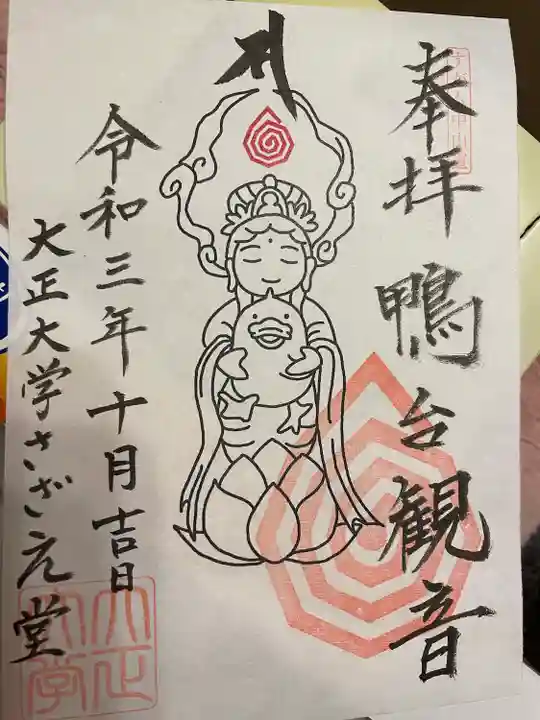 奉拝
鴨台観音
令和三年十月吉日
大正大学さざえ堂
大正
大学